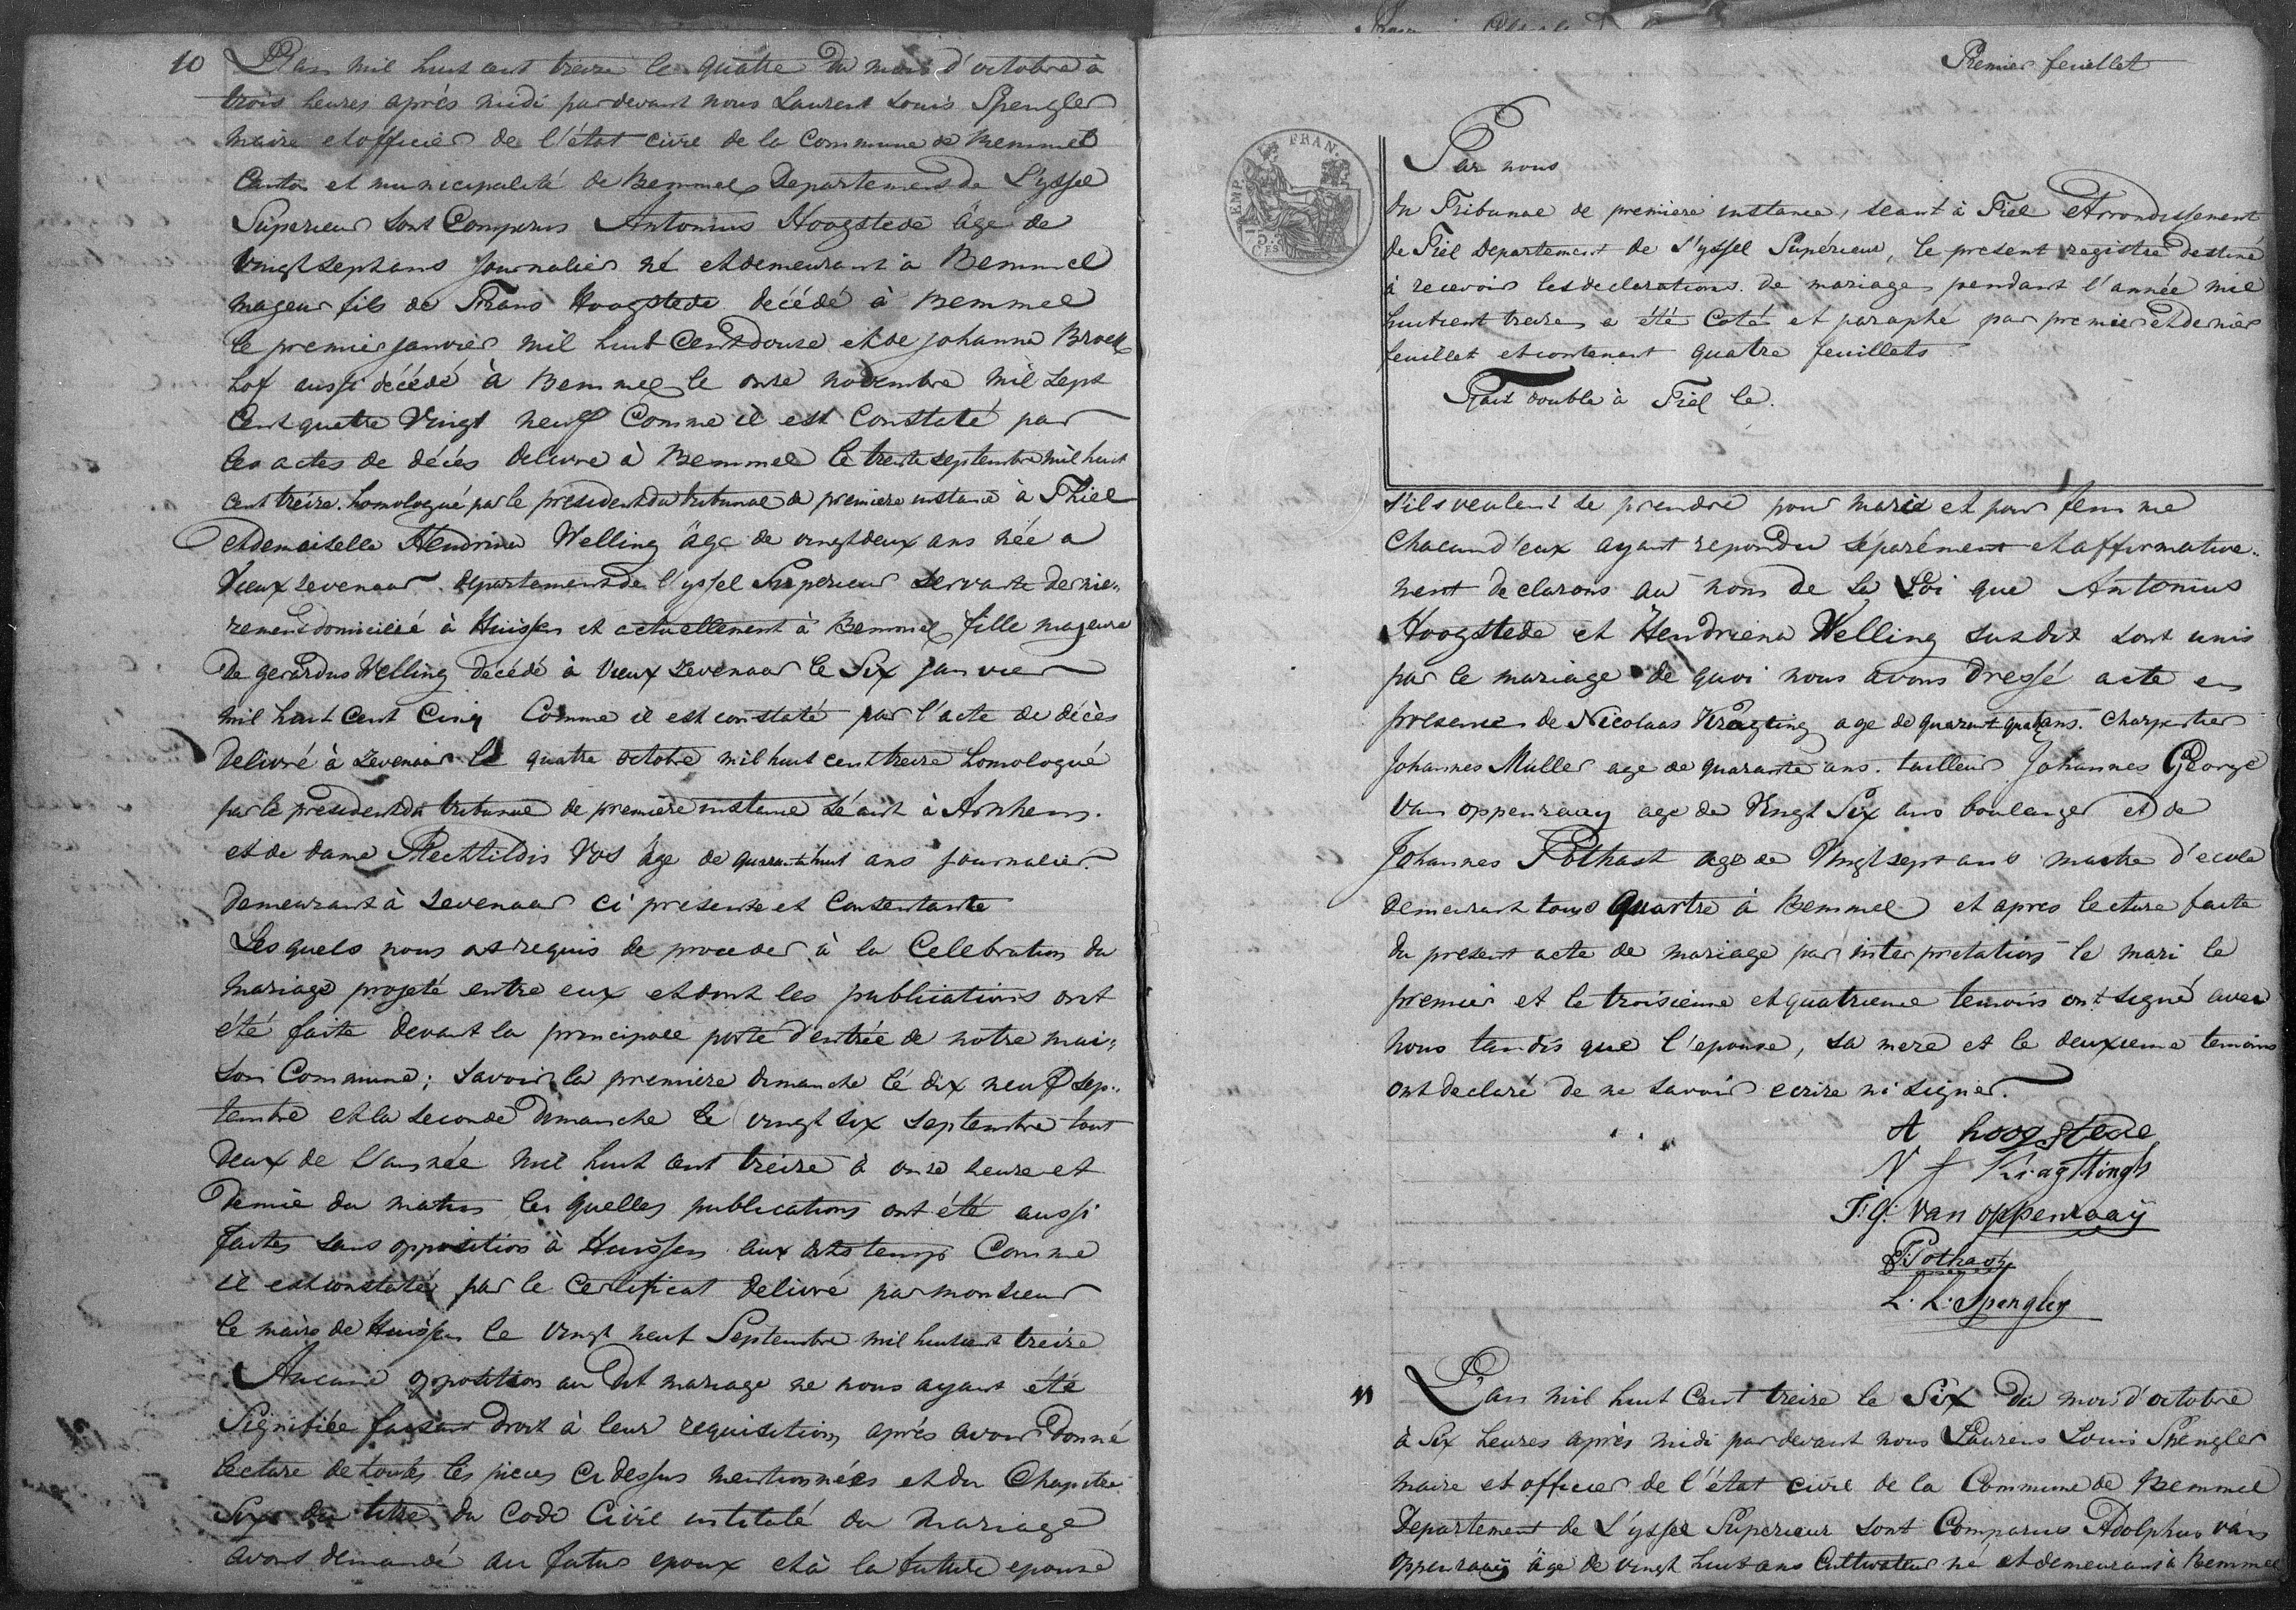 10 L'an mil huit cent treize le quatre du mois d'octobre à
trois heures après midi pardevant nous Laurent Louis Spengler
maire et officier de l'état civil de la Commune de Bemmel
Canton et municipalité de Bemmel Departement de L'yssel
Superieur sont Comparus Antonius Hoogstede âgé de
vingt sept ans journalier né et demeurant à Bemmel
majeur fils de Frans Hoogstede décédé à Bemmel
le premier janvier mil huit Cent douze et de johanna Broek
hof aussi décédé à Bemmel le onze novembre mil sept
Cent quatre Vingt neuf Comme il est Constaté par
les actes de décés delivre à Bemmel le trente septembre mil huit
cent treize. homologué par le president du tribunal de premiere instance à Thiel
et demoiselle Hendrina Welling âge de vingt deux ans née a
Vieux Zevenaar departement de l'yssel Superieur servante dernie„
rement domicilié à Huissen et actuellement à Bemmel fille majeure
de gerardus Welling decédé à Vieux Zevenaar le Six janvier
mil huit Cent Cinq Comme il est constaté par l'acte de décès
delivré à Zevenaar le quatre octobre mil huit cent treize homologué
par le president du tribunal de première instance séant à Arnhem.
et de dame Mechtildis Vos âge de quarante huit ans journalier
demeurant à Zevenaar ci presente et Consentante
Les quels nous ont requis de proceder à la Celebration du
mariage projeté entre eux et dont les publications ont
été faite devant la principale porte d'entrée de notre mai„
son Commune; savoir la première dimanche le dix neuf sep„
tembre et la seconde dimanche le vingt six septembre tout
deux de l'année mil huit cent treize à onze heure et
demie du matin les quelles publications ont été aussi
faites sans opposition à Huissen aux dits temps Comme
il est constaté par le Certificat delivré par monsieur
le maire de Huissen le vingt neuf Septembre mil huit cent treize
Aucune opposition au dit mariage ne nous ayant été
Signifiée faisant droit à leur requisition, après avoir donné
lecture de toutes les pieces ci dessus mentionnées et du Chapitre
Six du titre du Code Civil intitulé du Mariage
avons demandé au futur epoux et à la future epouse
Premier feuillet
TIMP. FRAN.
Par nous
du Tribunal de premiere instance, séant à Tiel Arrondissement
de Tiel Departement de l'yssel Supérieur, le present registre destiné
à recevoir les declarations de mariage pendant l'année mil
huit cent treize a été Coté et paraphé par premier et dernier
feuillet et contenant quatre feuillets
Fait double à Tiel le.
s'ils veulent se prendre pour mari et pour femme
Chacun d'eux ayant repondu séparément et affirmative„
ment declarons au nom de la Loi que Antonius
Hoogstede et Hendriena Welling susdit sont unis
par le mariage de quoi nous avons dressé acte en
presence de Nicolaas Kragting age de quarant quat ans. Charpentier
Johannes Muller age de quarante ans. tailleur Johannes George
Van oppenraay age de Vingt Six ans boulanger et de
Johannes Pothast age de Vingt sept ans maitre d'ecole
demeurant tous quartre à Bemmel et apres lecture faite
du present acte de mariage par interpretation le mari le
premier et le troisieme et quatrieme temoins ont signé avec
nous tandis que l'epouse, sa mere et le deuxieme temoins
ont declaré de ne savoir ecrire ni signer.
A hoogstede
N J Kragtingh
J: G: Van oppenraaÿ
J: Pothast
L. L. Spengler
11 L'an mil huit Cent treize le Six du mois d'octobre
à Six heures après midi pardevant nous Laurens Louis Spengler
maire et officier de l'état civil de la Commune de Bemmel
Departement de L'yssel Superieur sont Comparus Adolphus van
oppenraaÿ âge de vingt huit ans Cultivateur né et demeurant à Bemmel